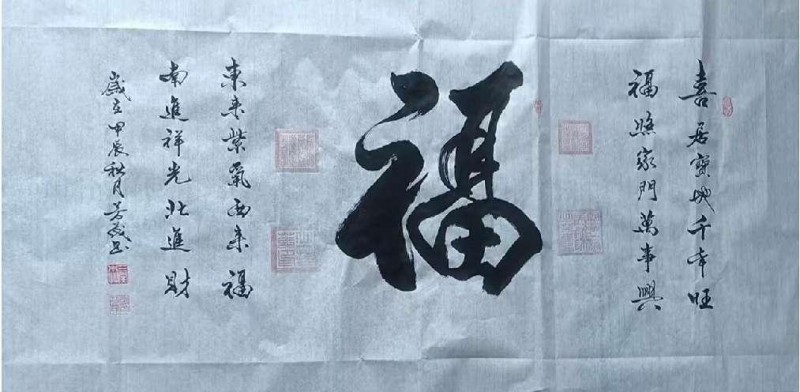 喜居寶地千年旺
福照家門萬事興
福
東來紫氣西來福
南進祥光北進財
歲在甲辰秋月